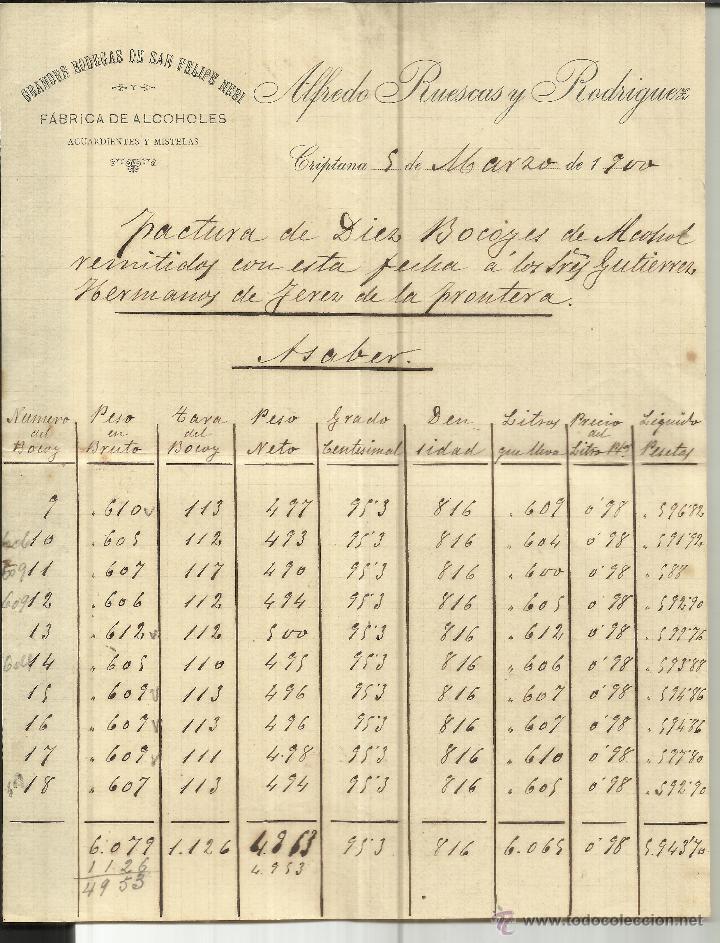 GRANDES BODEGAS DE SAN FELIPE NERI
Y
FÁBRICA DE ALCOHOLES
AGUARDIENTES Y MISTELAS
Alfredo Ruescas y Rodriguez
Criptana 5 de Marzo de 1900
Factura de Diez Bocoyes de Alcohol
remitidos con esta fecha á los Sres Gutierrez
Hermanos de Jerez de la Frontera.
Asaber.
Numero del Bocoy Peso en Bruto Tara del Bocoy Peso Neto Grado Centesimal Densidad Litros que lleva Precio del Litro Ptas Liquido Pesetas
9 " 610 113 497 95'3 816 " 609 0'98 " 596'82
10 " 605 112 493 95'3 816 " 604 0'98 " 591'92
609 11 " 607 117 490 95'3 816 " 600 0'98 " 588
609 12 " 606 112 494 95'3 816 " 605 0'98 " 592'90
13 " 612 112 500 95'3 816 " 612 0'98 " 599'76
14 " 605 110 495 95'3 816 " 606 0'98 " 593'88
15 " 609 113 496 95'3 816 " 607 0'98 " 594'86
16 " 609 113 496 95'3 816 " 607 0'98 " 594'86
17 " 609 111 498 95'3 816 " 610 0'98 " 597'80
18 " 607 113 494 95'3 816 " 605 0'98 " 592'90
6.079 1.126 4.953 95'3 816 6.065 0'98 5.943'70
1126 4.953
4953
www.todocoleccion.net